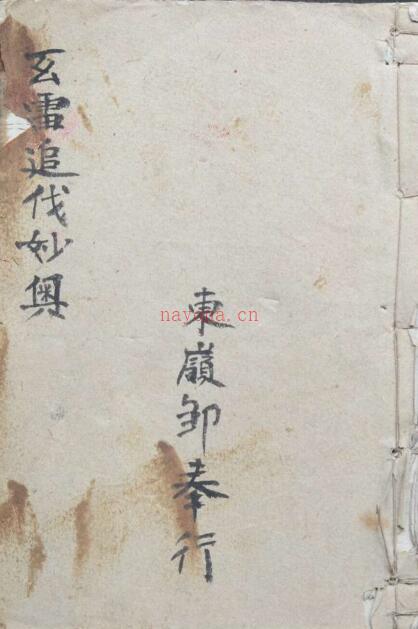 玄雷追伐妙奥
東嶺邹奉行
nayona.cn